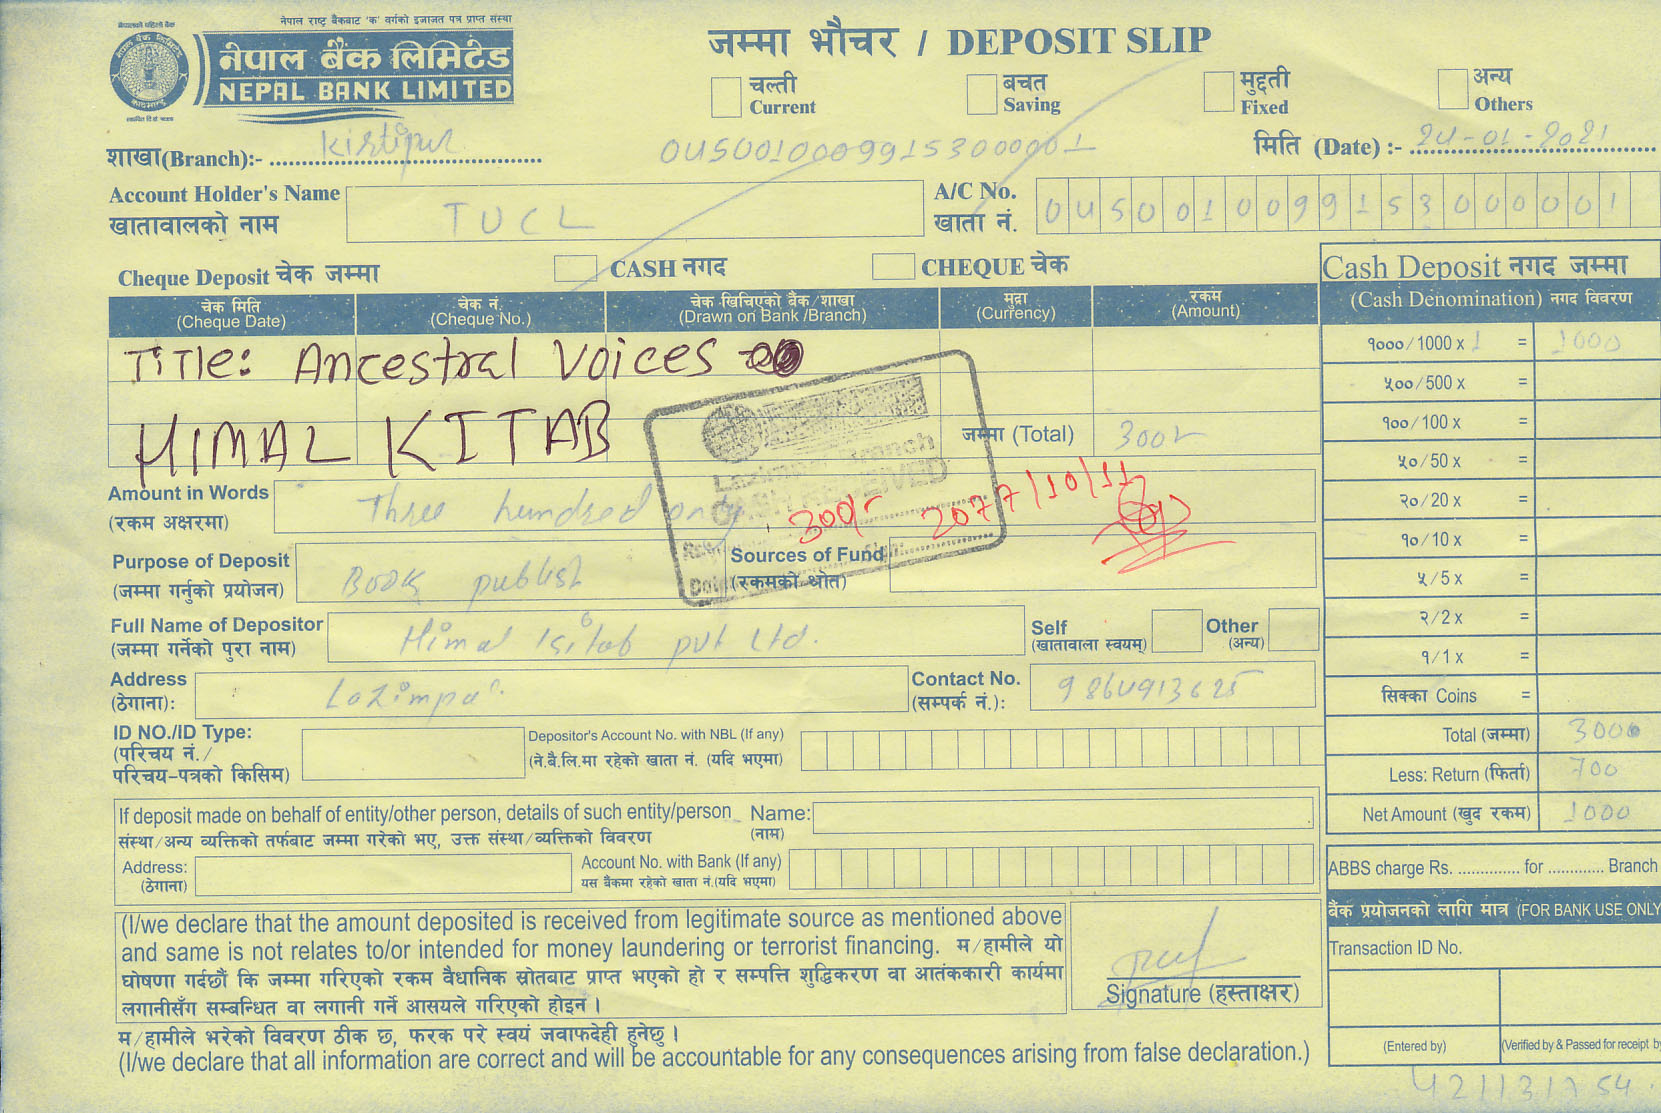 नेपालको पहिलो बैंक
नेपाल राष्ट्र बैंकबाट 'क' वर्गको इजाजत पत्र प्राप्त संस्था
नेपाल बैंक लिमिटेड
NEPAL BANK LIMITED
जम्मा भौचर / DEPOSIT SLIP
चल्ती
Current
बचत
Saving
मुद्दती
Fixed
अन्य
Others
शाखा(Branch):- Kirtipur
मिति (Date) :- 24-01-2021
Account Holder's Name
खातावालको नाम
TUCL
A/C No.
खाता नं.
04500100991530000001
Cheque Deposit चेक जम्मा
CASH नगद
CHEQUE चेक
चेक मिति
(Cheque Date)
चेक नं.
(Cheque No.)
चेक खिचिएको बैंक/शाखा
(Drawn on Bank /Branch)
मुद्रा
(Currency)
रकम
(Amount)
Title: Ancestral Voices
HIMAL KITAB
जम्मा (Total) 300/-
Branch
CASH RECEIVED
300/- 2077/10/11
Amount in Words
(रकम अक्षरमा)
Three hundred only
Purpose of Deposit
(जम्मा गर्नुको प्रयोजन)
Book publish
Sources of Fund
(रकमको श्रोत)
Full Name of Depositor
(जम्मा गर्नेको पुरा नाम)
Himal Kitab pvt Ltd.
Self
(खातावाला स्वयम्)
Other
(अन्य)
Address
(ठेगाना):
Lazimpat
Contact No.
(सम्पर्क नं.):
ID NO./ID Type:
(परिचय नं./
परिचय-पत्रको किसिम)
Depositor's Account No. with NBL (If any)
(ने.बै.लि.मा रहेको खाता नं. (यदि भएमा)
If deposit made on behalf of entity/other person, details of such entity/person
संस्था/अन्य व्यक्तिको तर्फबाट जम्मा गरेको भए, उक्त संस्था/व्यक्तिको विवरण
Name:
(नाम)
Address:
(ठेगाना)
Account No. with Bank (If any)
यस बैंकमा रहेको खाता नं.(यदि भएमा)
(I/we declare that the amount deposited is received from legitimate source as mentioned above
and same is not relates to/or intended for money laundering or terrorist financing. म/हामीले यो
घोषणा गर्दछौं कि जम्मा गरिएको रकम वैधानिक स्रोतबाट प्राप्त भएको हो र सम्पत्ति शुद्धिकरण वा आतंककारी कार्यमा
लगानीसँग सम्बन्धित वा लगानी गर्ने आसयले गरिएको होइन ।
Signature (हस्ताक्षर)
म/हामीले भरेको विवरण ठीक छ, फरक परे स्वयं जवाफदेही हुनेछु ।
(I/we declare that all information are correct and will be accountable for any consequences arising from false declaration.)
Cash Deposit नगद जम्मा
(Cash Denomination) नगद विवरण
१०००/1000 x 1 = 1000
५००/500 x =
१००/100 x =
५०/50 x =
२०/20 x =
१०/10 x =
५/5 x =
२/2 x =
१/1 x =
सिक्का Coins =
Total (जम्मा) 3000
Less: Return (फिर्ता) 700
Net Amount (खुद रकम) 1000
ABBS charge Rs. .............. for ............. Branch
बैंक प्रयोजनको लागि मात्र (FOR BANK USE ONLY
Transaction ID No.
(Entered by)
(Verified by & Passed for receipt by